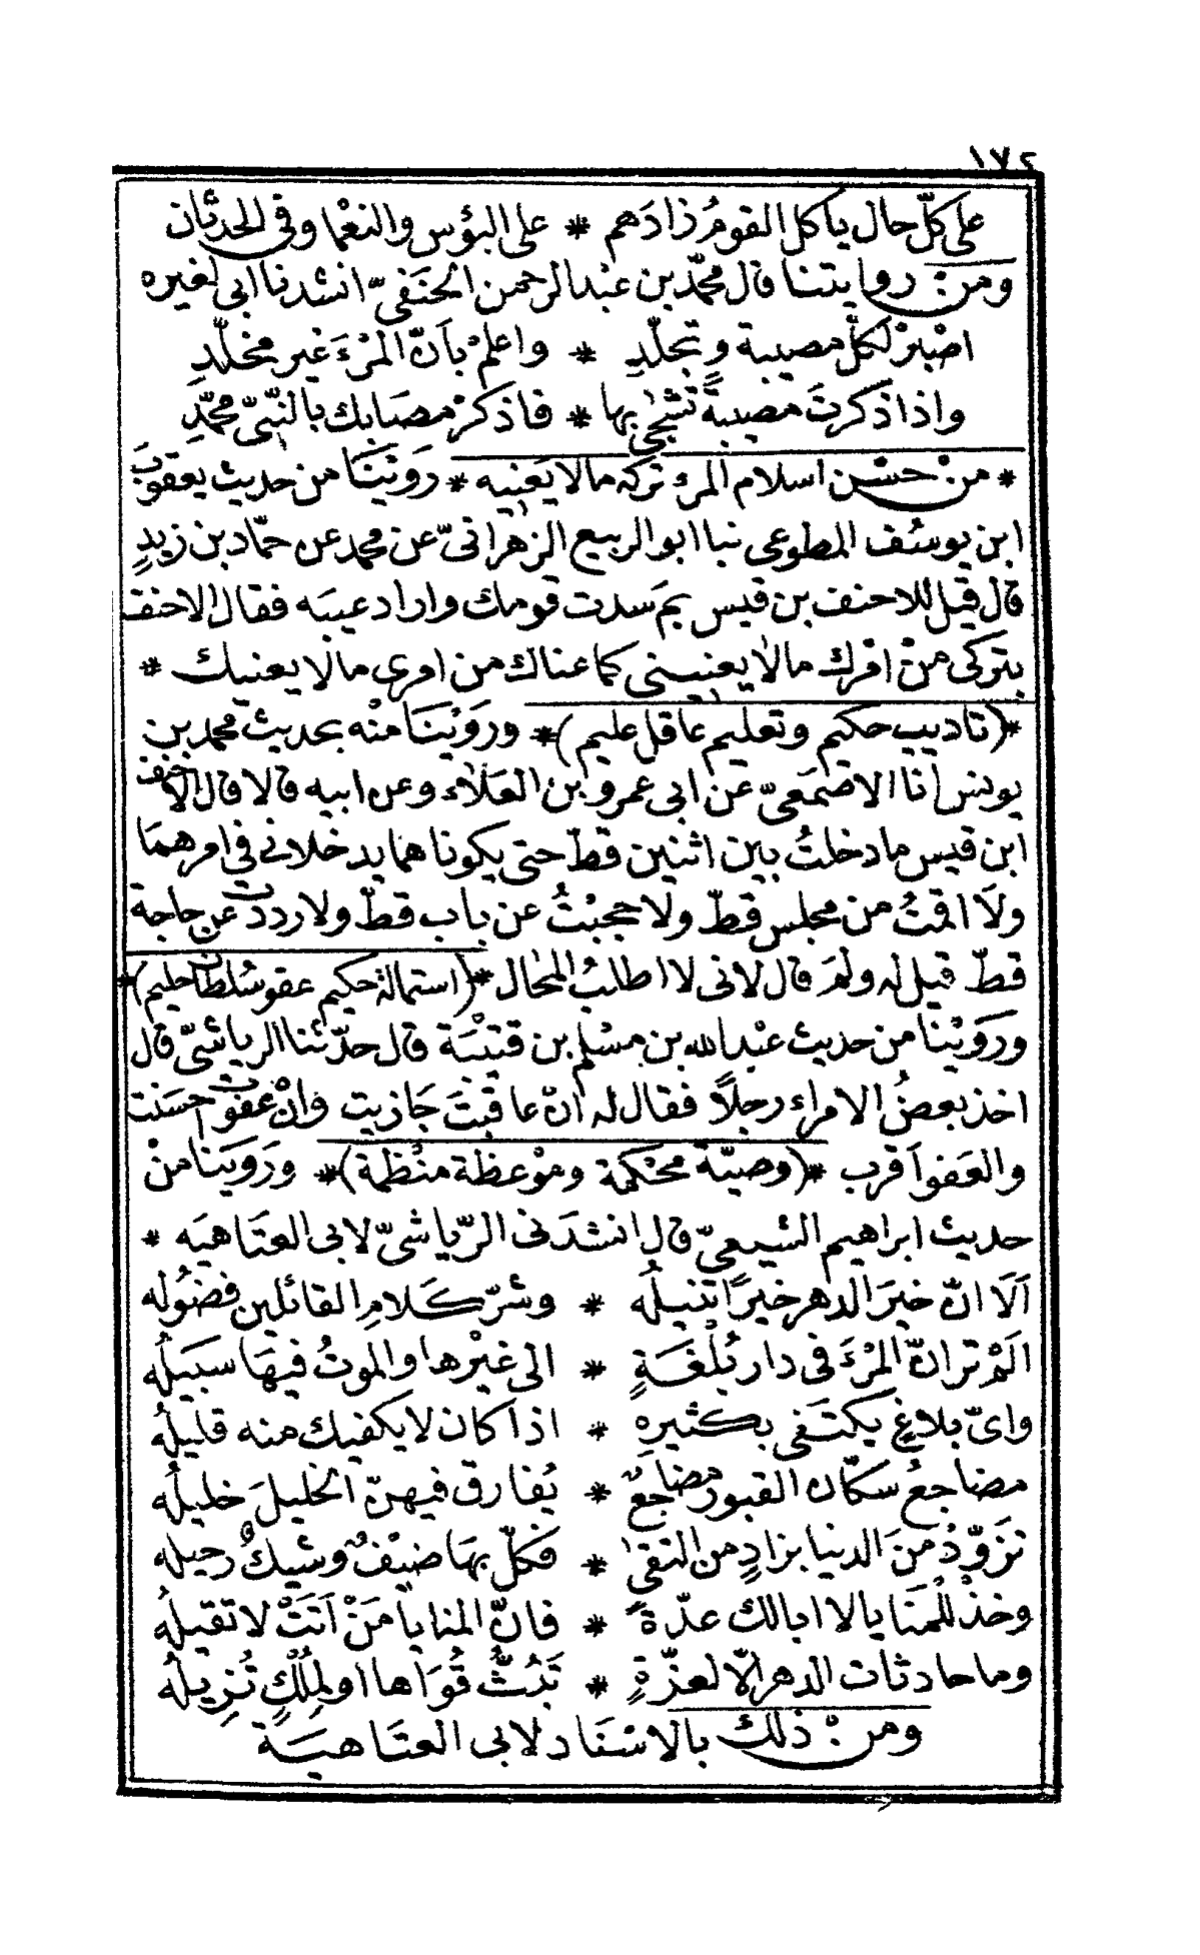 ١٧٤
على كلّ حال ياكل القومُ زادَهم * على البؤس والنعْما وفي الحدثان
ومن: روايتنا قال محمّد بن عبْد الرحمن الحنَفيّ انشدنا ابى لغيره
اصْبرْ لكلّ مصيبة وتجلّدِ * واعلمْ بأنّ المرْءَ غير مخلّدِ
واذا ذكرتَ مصيبةً تشجٰى بها * فاذكرْ مصَابك بالنّبيّ محمّدِ
* من: حسْن اسلام المرء تركه ما لا يَعنيه * رَوَيْنَا من حديث يعقوبَ
ابن يوسُف المطوعى نبا ابو الربيع الزهرانىّ عن محمد عن حمّاد بن زيدٍ
قال قيل للاحنف بن قيس بمَ سدت قومك واراد عيبَه فقال الاحنف
بتركى منْ امْرك ما لا يعنينى كما عناك من امرى ما لا يعنيك *
*(تاديب حكيم وتعليم عاقل عليم)* ورَوَيْنَا منْه بحديث محمد بن
يونس انا الاصْمَعىّ عن ابى عمرو بن العَلَاء وعن ابيه قالا قال الاحنف
ابن قيس ما دخلتُ بين اثنين قطّ حتى يكونا هما يدخلانى فى امرهمَا
ولَا اقمتُ من مجلس قطّ ولا حجبْتُ عن باب قطّ ولا رددت عن حاجة
قطّ قيل له ولمَ قال لانى لا اطلبُ المحَال *(استمالة حكيم عفو سُلطان حليم)*
ورَوَيْنا من حديث عبْد الله بن مسْلم بن قتيْبَة قال حدّثنا الرياشىّ قال
اخذ بعضُ الامراء رجلاً فقال له انّ عاقبْتَ جَازيت وانْ عفوْت احسَنت
والعَفو اَقرب *(وصيّة محْكمة وموْعظة منْظمة)* ورَوَيَنا منْ
حديث ابراهيم الشيعىّ قال انشدَنى الرّياشىّ لابى العتَاهيَه *
اَلَا انّ خيرَ الدهر خيرًا تنيلُه * وشرّ كلامِ القائلين فضُولُه
الَمْ تر انّ المرْءَ فى دار بُلْغَةٍ * الى غيْرها والموتُ فيهَا سبَيلُه
واىّ بلاغٍ يكتَفى بكثيرهِ * اذا كان لا يكفيك منه قليلُه
مضاجعُ سكّان القبور مضاجعٌ * يُفارق فيهنّ الخليلَ خليلُه
تزَوّدْ منَ الدنيا بزادٍ من التقىٰ * فكلّ بهَا ضيْفٌ وشيكٌ رحيله
وخذْ للمنَايا لا ابالك عدّةً * فانّ المنايا مَنْ اَتَتْ لا تقيلُه
وما حادثات الدهر الّا لعزّةٍ * تَبُثُّ قُوَاها او لمِلُكٍ تُزِيلُه
ومن: ذلك بالاسْنَاد لابى العتَاهيَة